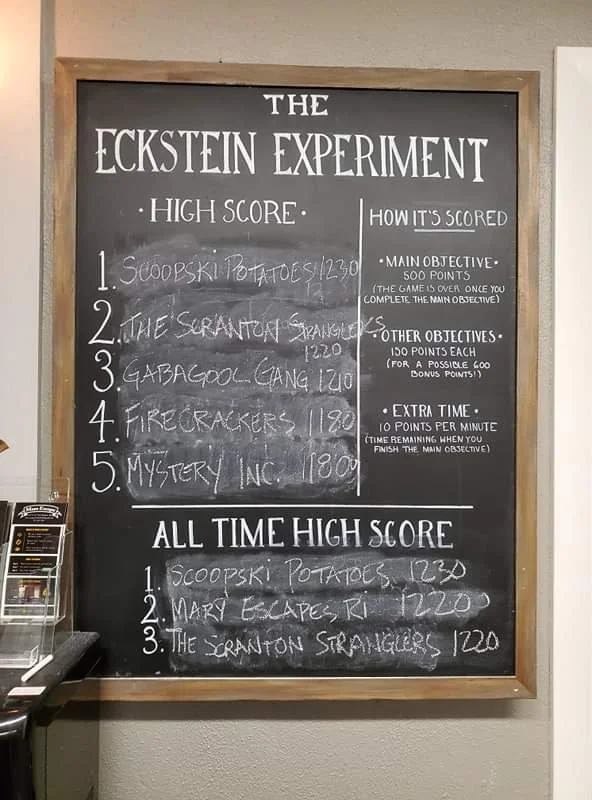 THE
ECKSTEIN EXPERIMENT
• HIGH SCORE •
1. SCOOPSKI POTATOES 1230
2. THE SCRANTON STRANGLERS
1220
3. GABAGOOL GANG 1210
4. FIRECRACKERS 1180
5. MYSTERY INC. 1180
HOW IT'S SCORED
• MAIN OBJECTIVE •
500 POINTS
(THE GAME IS OVER ONCE YOU
COMPLETE THE MAIN OBJECTIVE)
• OTHER OBJECTIVES •
150 POINTS EACH
(FOR A POSSIBLE 600
BONUS POINTS!)
• EXTRA TIME •
10 POINTS PER MINUTE
(TIME REMAINING WHEN YOU
FINISH THE MAIN OBJECTIVE)
ALL TIME HIGH SCORE
1. SCOOPSKI POTATOES 1230
2. MARY ESCAPES, RI 1220
3. THE SCRANTON STRANGLERS 1220